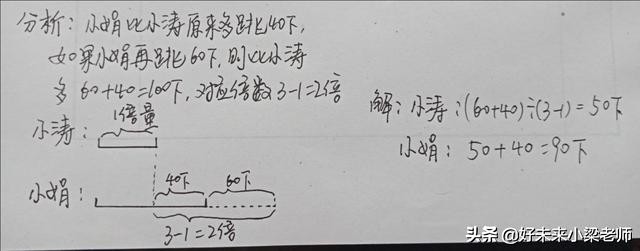 分析：小娟比小涛原来多跳40下，
如果小娟再跳60下，则比小涛
多 60+40=100下，对应倍数 3-1=2倍
1倍量
小涛：
40下 60下
小娟：
3-1=2倍
解：小涛：(60+40)÷(3-1)=50下
小娟：50+40=90下
头条 @好未来小梁老师